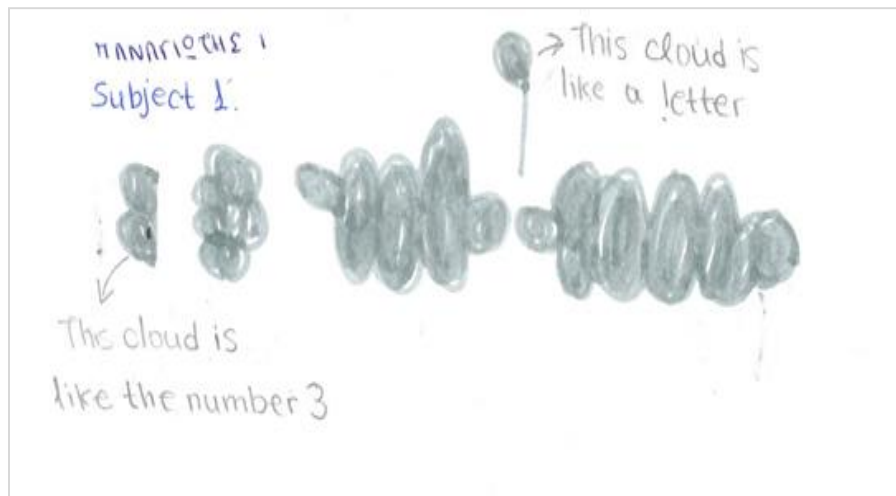 ΠΑΝΑΓΙΩΤΗΣ Ι
Subject 1.
This cloud is
like a letter
This cloud is
like the number 3